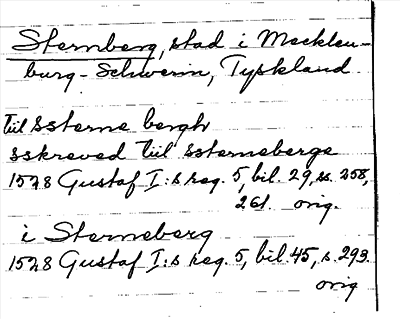 Sternberg, stad i Mecklen-
burg-Schwerin, Tyskland
tiil Ssterne bergh
sskreved tiil Ssternebergs
1528 Gustaf I:s reg. 5, bil. 29, ss. 258,
261. orig.
i Sterneberg
1528 Gustaf I:s reg. 5, bil. 45, s. 293.
orig